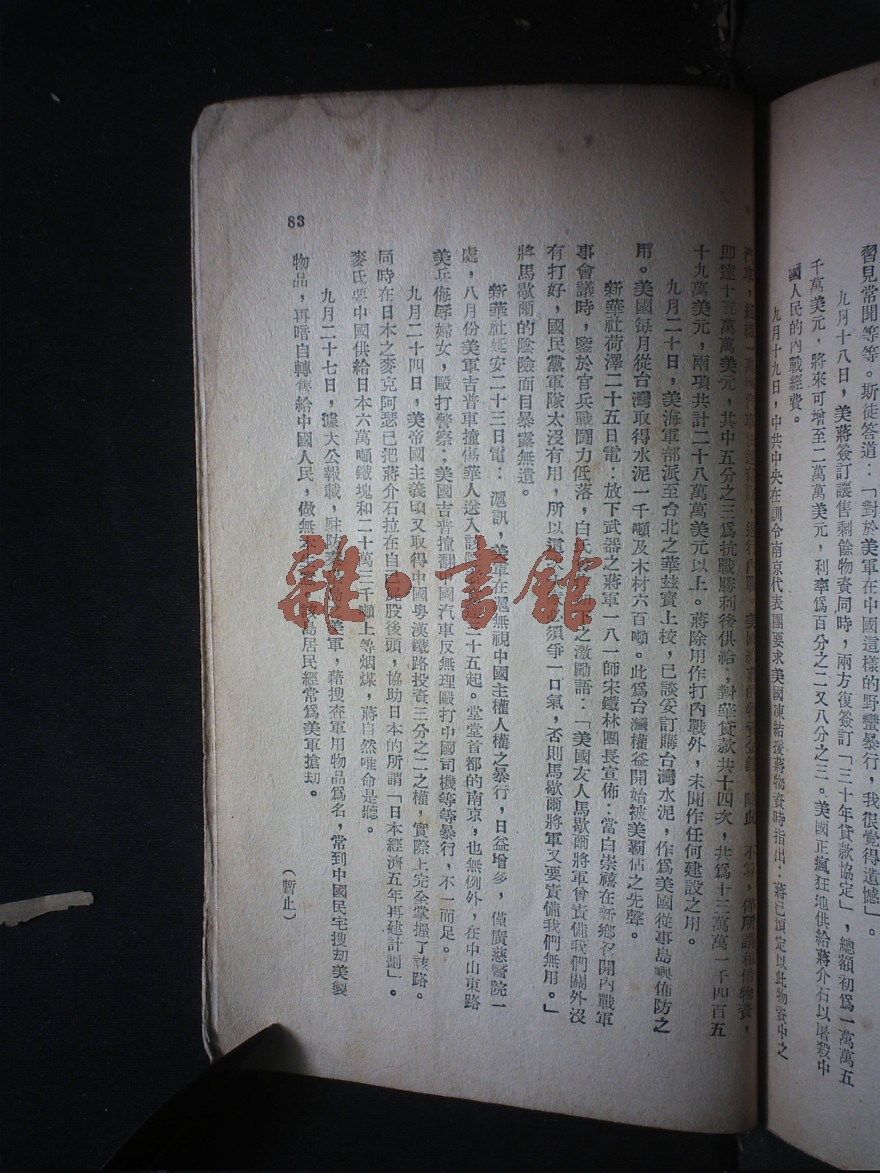 習見常聞等等。斯徒答道：「對於美軍在中國這樣的野蠻暴行，我很覺得遺憾」。
九月十八日，美蔣簽訂讓售剩餘物資同時，兩方復簽訂「三十年貸款協定」，總額初爲一萬萬五
千萬美元，將來可增至二萬萬美元，利率爲百分之二又八分之三。美國正瘋狂地供給蔣介石以屠殺中
國人民的內戰經費。
九月十九日，中共中央在訓令南京代表團要求美國凍結後蔣物資時指出：蔣已預定以此物資中之
不算，僅所謂租借物資，
即達十五萬萬美元，其中五分之三爲抗戰勝利後供給；對華貸款共十四次，共爲十三萬萬一千四百五
十九萬美元，兩項共計二十八萬萬美元以上。蔣除用作打內戰外，未聞作任何建設之用。
九月二十日，美海軍部派至台北之華茲賓上校，已談妥訂購台灣水泥，作爲美國從事島嶼佈防之
用。美國每月從台灣取得水泥一千噸及木材六百噸。此爲台灣權益開始被美霸佔之先聲。
新華社荷澤二十五日電：放下武器之蔣軍一八一師宋鐵林團長宣佈：當白崇禧在新鄉召開內戰軍
事會議時，鑒於官兵戰鬥力低落，白氏 之激勵語：「美國友人馬歇爾將軍曾責備我們關外沒
有打好，國民黨軍隊太沒有用，所以這 必須爭一口氣，否則馬歇爾將軍又要責備我們無用。」
將馬歇爾的陰險面目暴露無遺。
新華社延安二十三日電：滬訊，美軍在滬無視中國主權人權之暴行，日益增多，僅廣慈醫院一
處，八月份美軍吉普車撞傷華人送入該院 二十五起。堂堂首都的南京，也無例外，在中山東路
美兵侮辱婦女，毆打警察；美國吉普撞翻 國汽車反無理毆打中國司機等等暴行，不一而足。
九月二十四日，美帝國主義頃又取得中國粵漢鐵路投資三分之二之權，實際上完全掌握了該路。
同時在日本之麥克阿瑟已把蔣介石拉在自己屁股後頭，協助日本的所謂「日本經濟五年再建計劃」。
麥氏要中國供給日本六萬噸鐵塊和二十萬三千噸上等烟煤，蔣自然唯命是聽。
九月二十七日，據大公報載，駐防 美軍，藉搜查軍用物品爲名，常到中國民宅搜刧美製
物品，再暗自轉售給中國人民，做無本 島居民經常爲美軍搶刧。
（暫止）
83
雜·書館